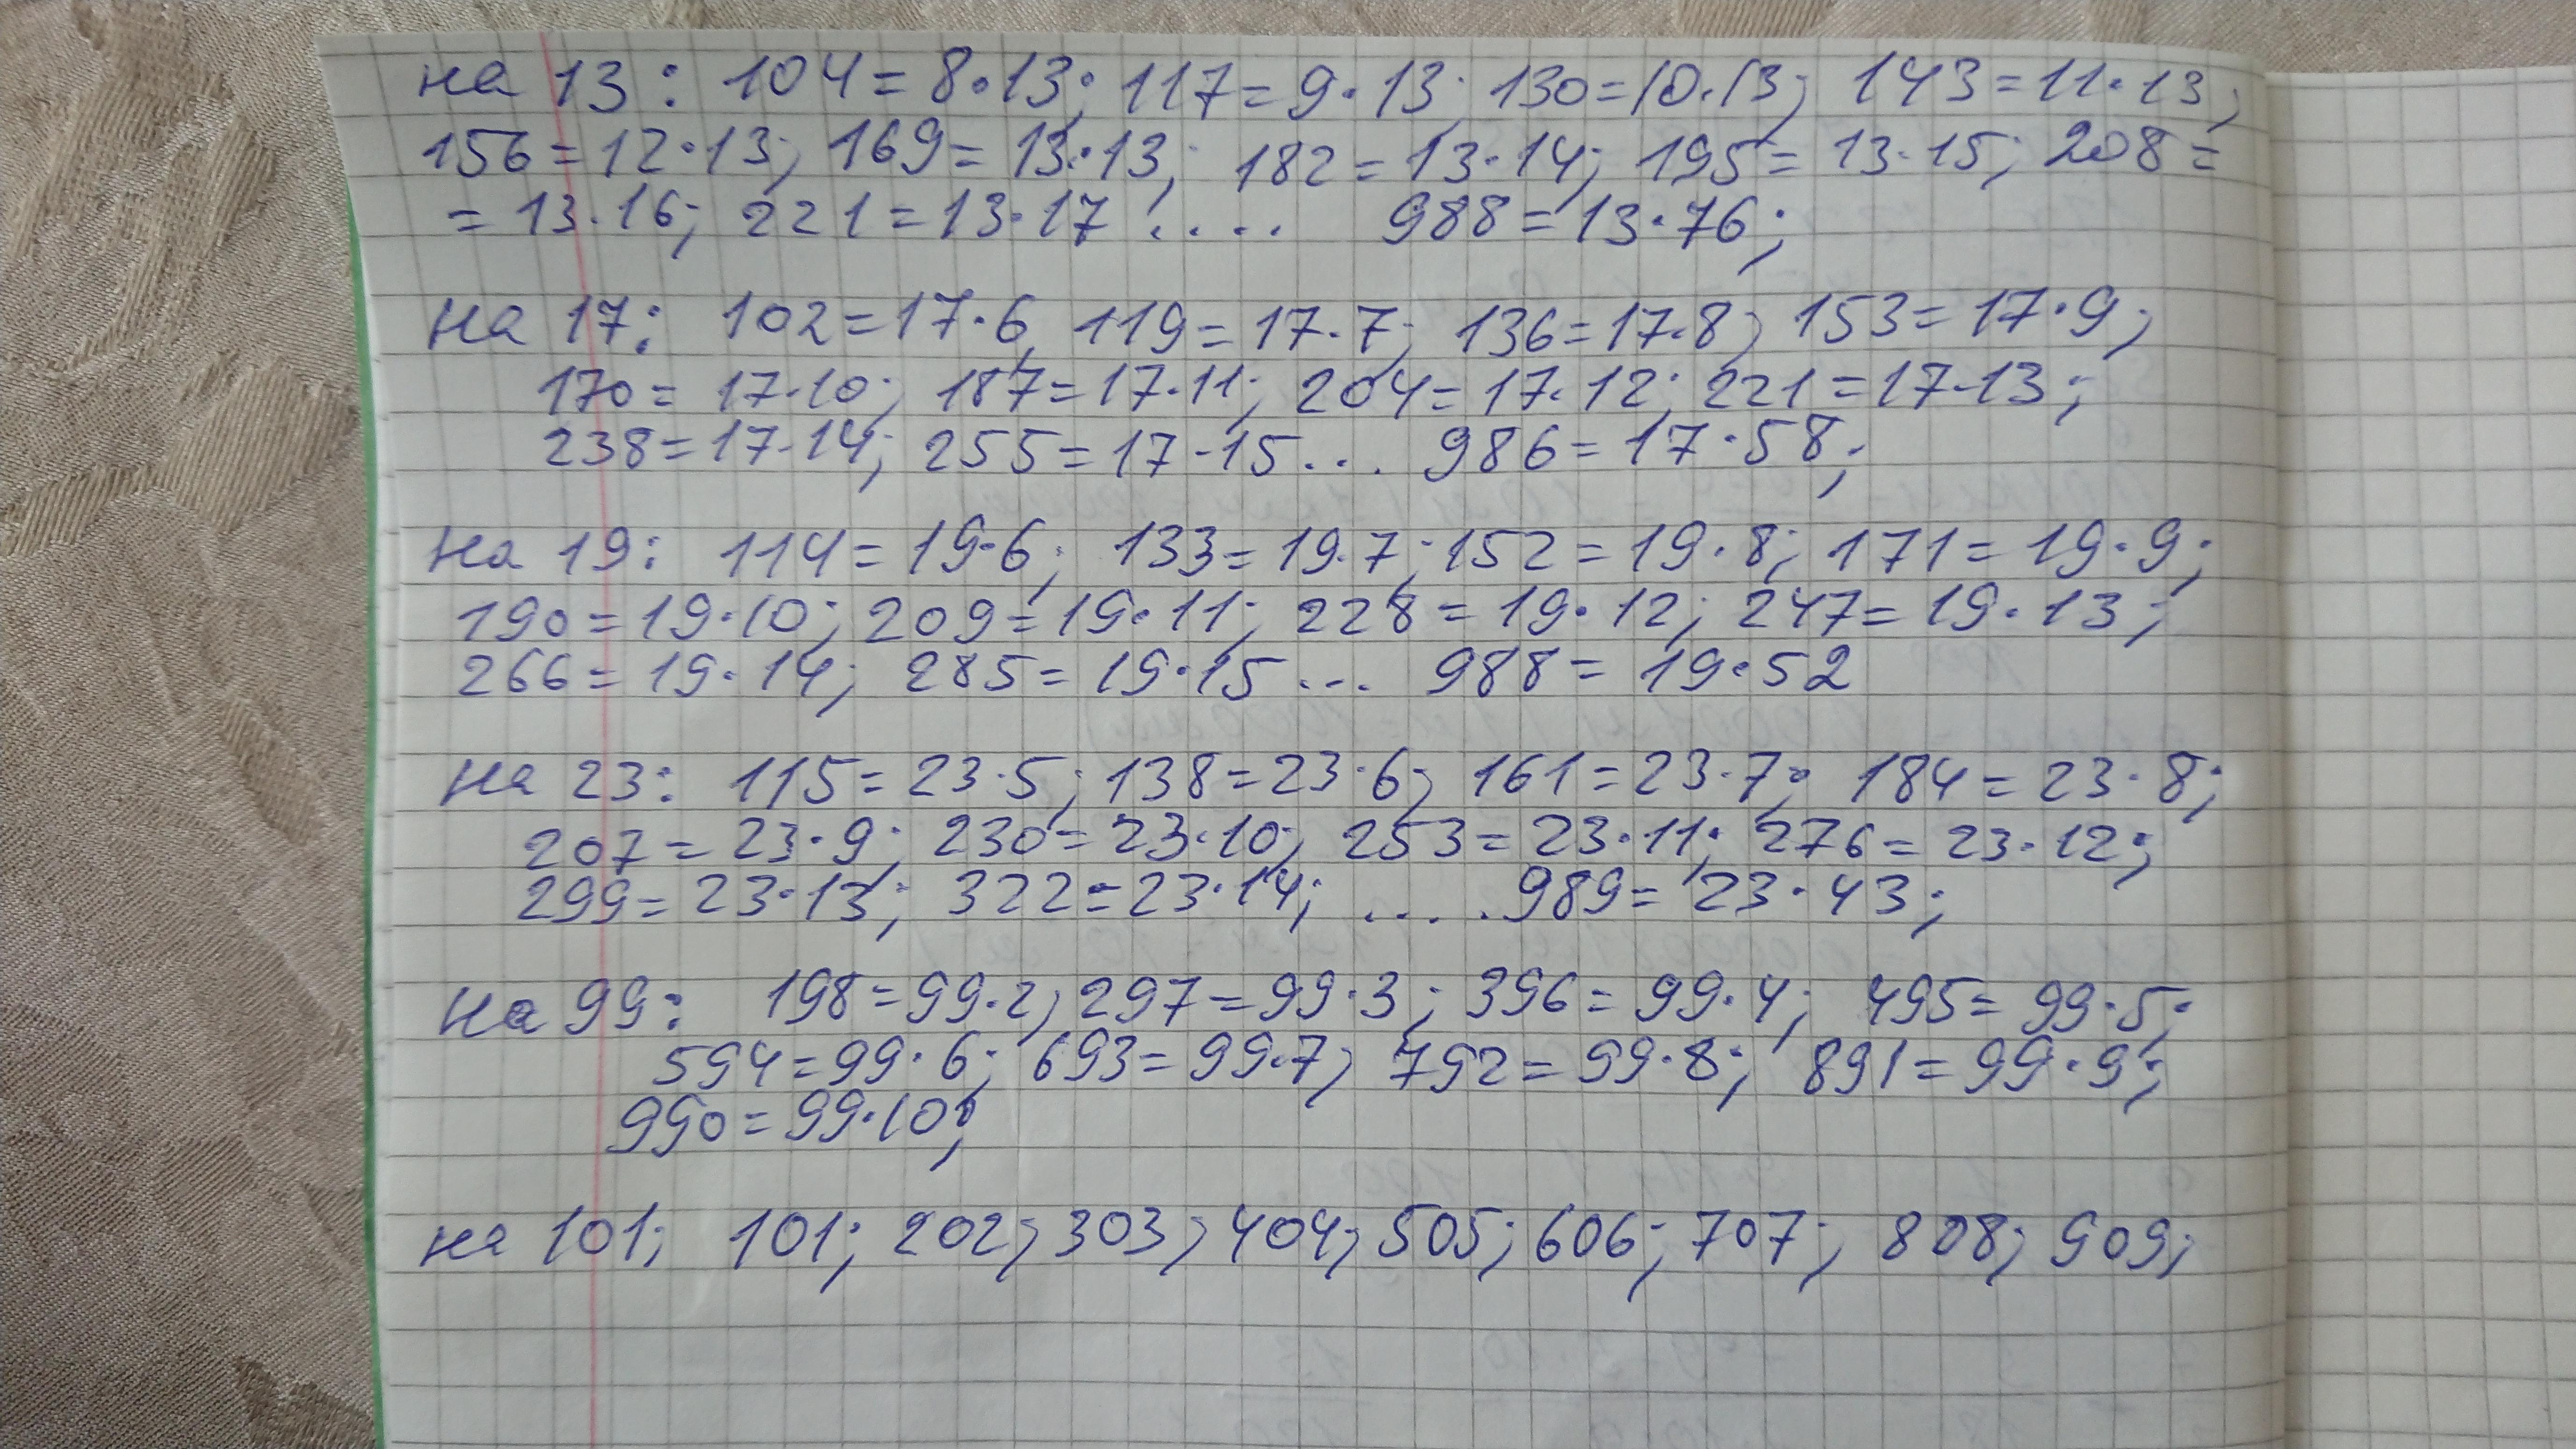 на 13: 104 = 8·13; 117 = 9·13; 130 = 10·13; 143 = 11·13;
156 = 12·13; 169 = 13·13; 182 = 13·14; 195 = 13·15; 208 =
= 13·16; 221 = 13·17; .... 988 = 13·76;
на 17: 102 = 17·6; 119 = 17·7; 136 = 17·8; 153 = 17·9;
170 = 17·10; 187 = 17·11; 204 = 17·12; 221 = 17·13;
238 = 17·14; 255 = 17·15 ... 986 = 17·58;
на 19: 114 = 19·6; 133 = 19·7; 152 = 19·8; 171 = 19·9;
190 = 19·10; 209 = 19·11; 228 = 19·12; 247 = 19·13;
266 = 19·14; 285 = 19·15 ... 988 = 19·52
на 23: 115 = 23·5; 138 = 23·6; 161 = 23·7; 184 = 23·8;
207 = 23·9; 230 = 23·10; 253 = 23·11; 276 = 23·12;
299 = 23·13; 322 = 23·14; .... 989 = 23·43;
на 99: 198 = 99·2; 297 = 99·3; 396 = 99·4; 495 = 99·5;
594 = 99·6; 693 = 99·7; 792 = 99·8; 891 = 99·9;
990 = 99·10;
на 101; 101; 202; 303; 404; 505; 606; 707; 808; 909;